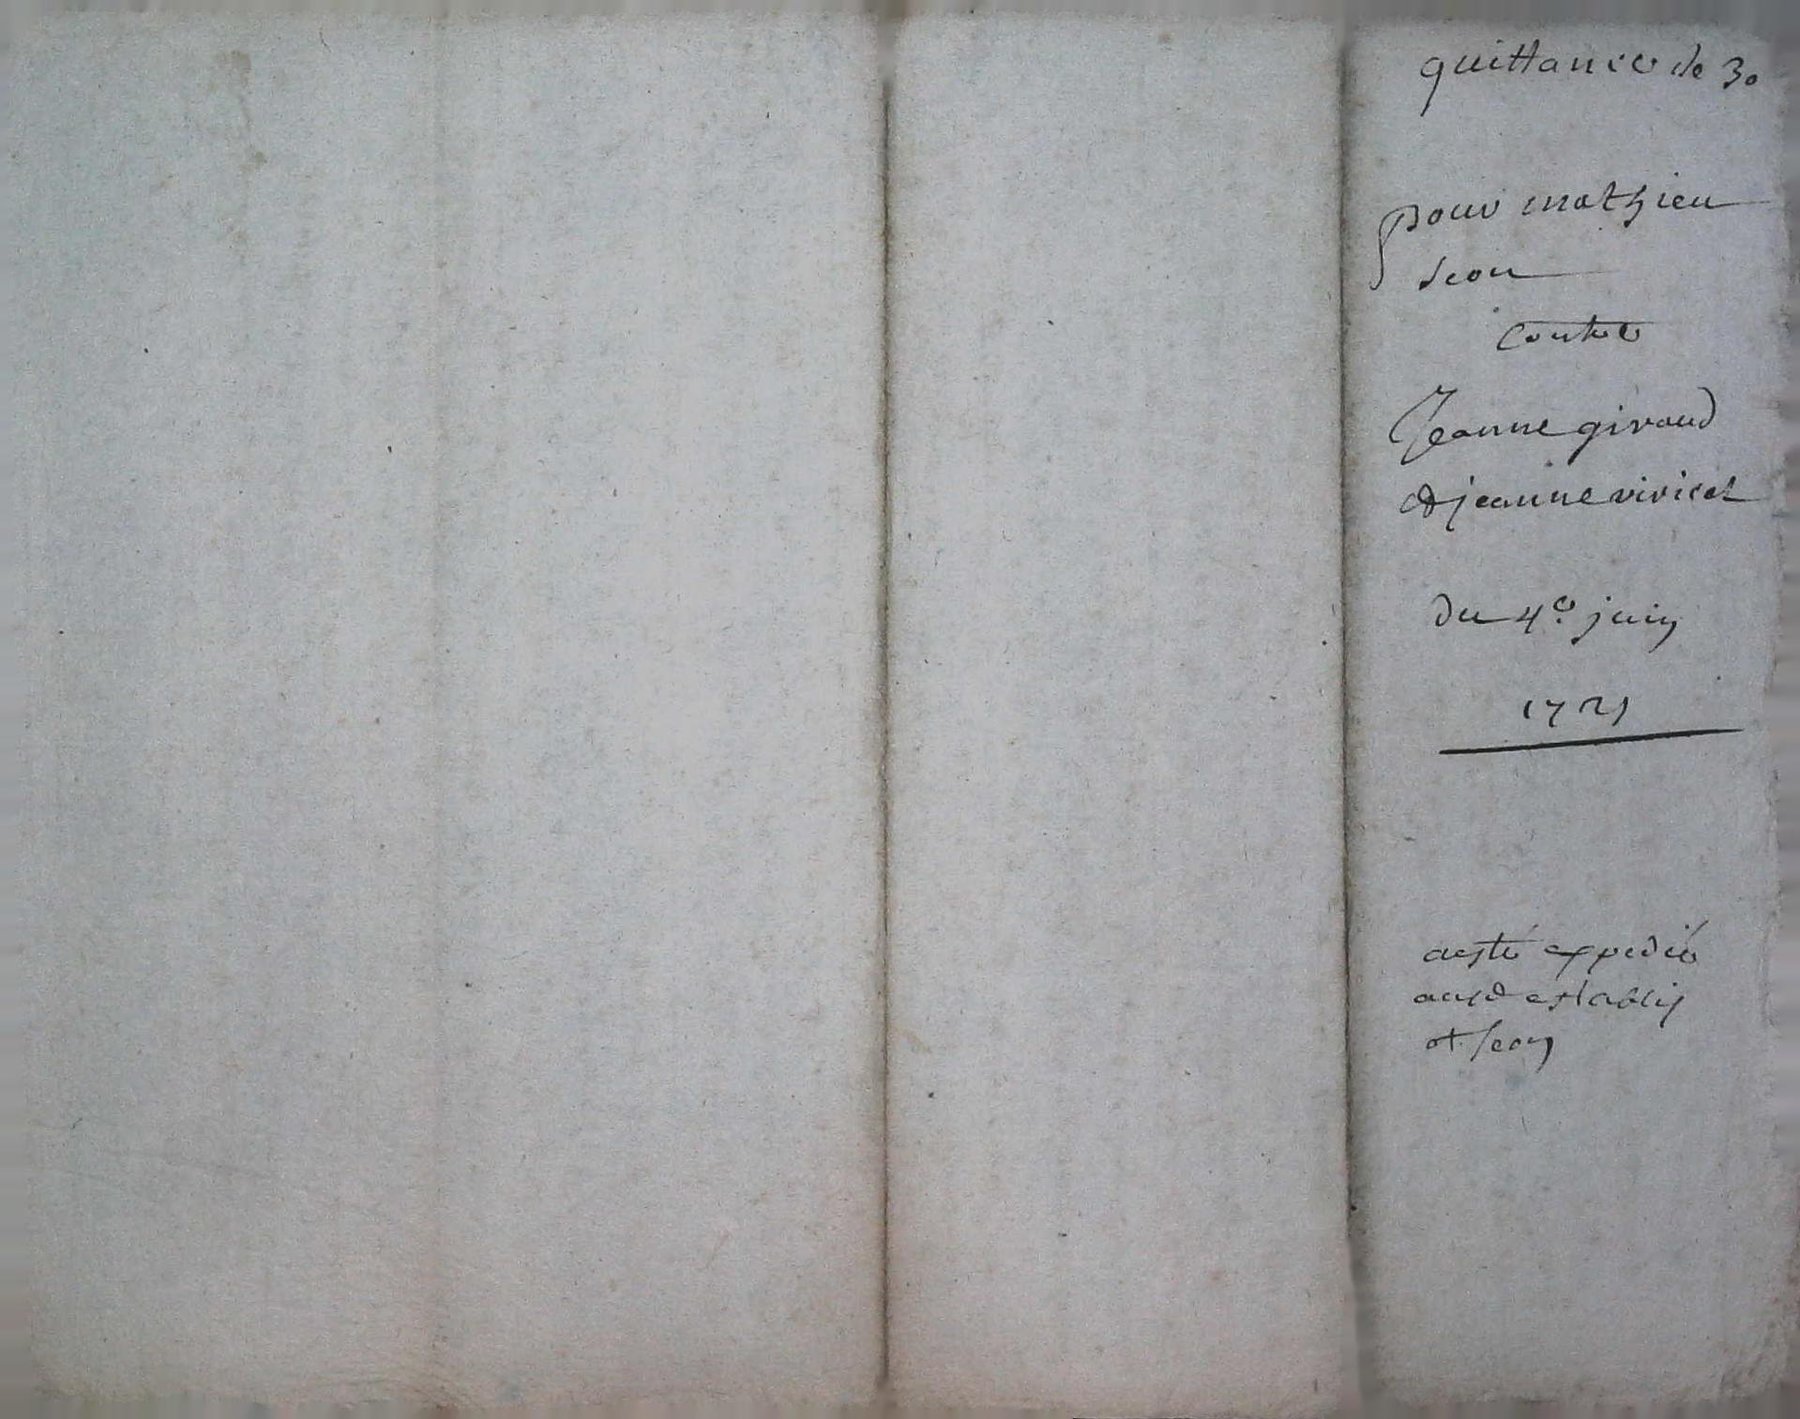 quittance de 30
pour mathieu
seon
contre
Jeanne giraud
& jeanne viricel
du 4e juin
1721
a esté expedié
ausd establis
et seon